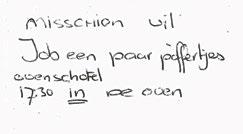 MISSCHION wil
Job een paar poffertjes
ovenschotel
17.30 in DE oven